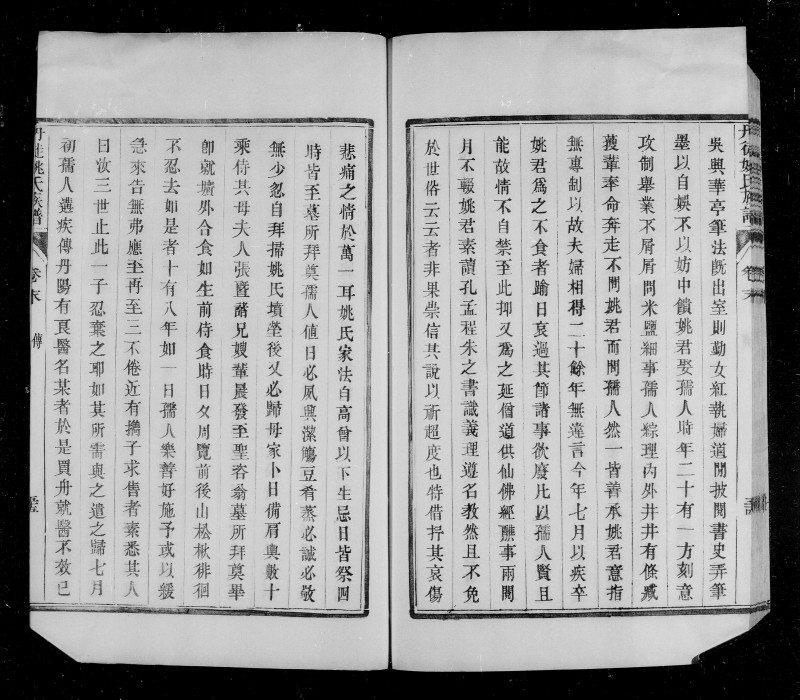 丹徒姚氏族譜
卷末
譜
吳興華亭筆法旣出室則勤女紅執婦道閒披閱書史弄筆
墨以自娛不以妨中饋姚君娶孺人時年二十有一方刻意
攻制舉業不屑屑問米鹽細事孺人綜理內外井井有條臧
獲輩奉命奔走不問姚君而問孺人然一皆善承姚君意指
無專制以故夫婦相得二十餘年無違言今年七月以疾卒
姚君爲之不食者踰日哀過其節諸事欲廢凡以孺人賢且
能故情不自禁至此抑又爲之延僧道供仙佛經醮事兩閱
月不輟姚君素讀孔孟程朱之書識義理遵名教然且不免
於世俗云云者非果崇信其說以祈超度也特借抒其哀傷
悲痛之情於萬一耳姚氏家法自高曾以下生忌日皆祭四
時皆至墓所拜奠孺人値日必夙興潔觴豆肴蒸必誠必敬
無少忽自拜掃姚氏墳塋後又必歸母家卜日備肩輿數十
乘侍其母夫人張曁酷兄嫂輩晨發至聖 翁墓所拜奠畢
卽就墳外合食如生前侍食時日夕周覽前後山松楸徘徊
不忍去如是者十有八年如一日孺人樂善好施予或以緩
急來告無弗應至再至三不倦近有攜子求售者素悉其人
曰汝三世止此一子忍棄之耶如其所需與之遣之歸七月
初孺人遘疾傳丹陽有良醫名某者於是買舟就醫不效已
丹徒姚氏族譜
卷末 傳